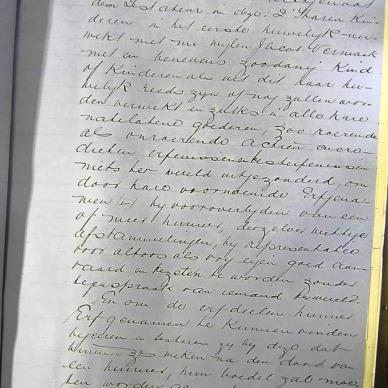 den Testateur in dezo. 2' haren Kin-
deren in het eerste huwelijk ver-
wekt met nu wylen Jacob Vermaak
met en benevens zoodanig Kind
of Kinderen als uit dit haar hu-
welijk reeds zyn of nog zullen wor-
den verwekt en zulks in alle hare
natelatene goederen, zoo roerende
als onroerende actien en cre-
dieten, erfenissen besterfenissen
niets ter wereld uitgezonderd, om
door hare voornoemde Erfgena-
men of by vooroverlyden van een
of meer hunner, derzelver wettige
afstammelingen, by representatie
voor altoos als vry eigen goed aan-
vaard en bezeten te worden zonder
tegenspraak van iemand ter wereld.
En om de erfdeelen hunner
Erfgenamen te kunnen vinden
begeeren en besluiten zy by dezo dat
binnen zes weken na den dood van
een hunner, hun boedel zal moe-
ten worden